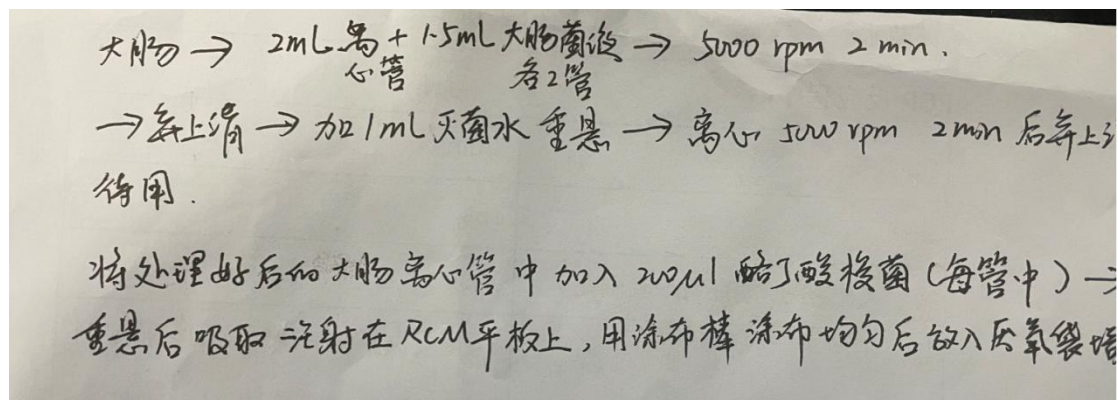 大肠 → 2mL 离 + 1.5mL 大肠菌液 → 5000 rpm 2 min.
心管 各2管
→ 弃上清 → 加1mL 灭菌水 重悬 → 离心 5000 rpm 2min 后弃上
待用.
将处理好后的大肠离心管中加入 200μl 酪丁酸梭菌(每管中) →
重悬后吸取注射在RCM平板上,用涂布棒涂布均匀后放入厌氧袋培